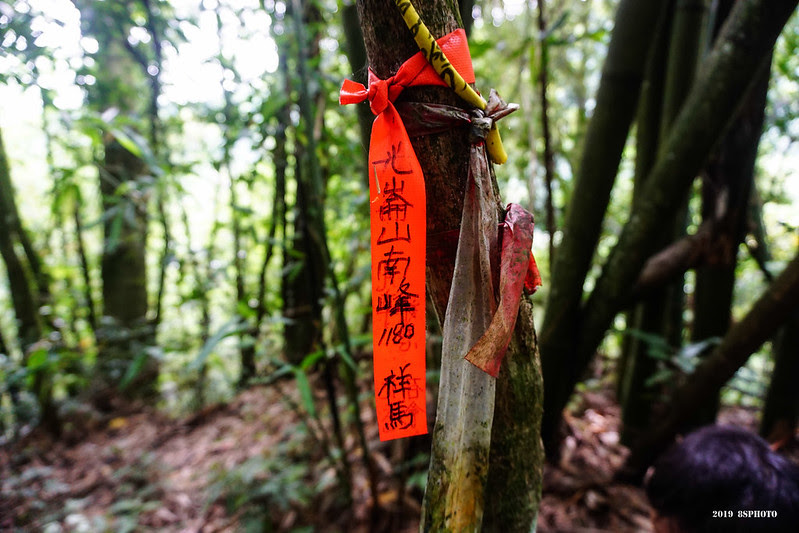 北崙山南峰
1180
祥馬
2019 8SPHOTO